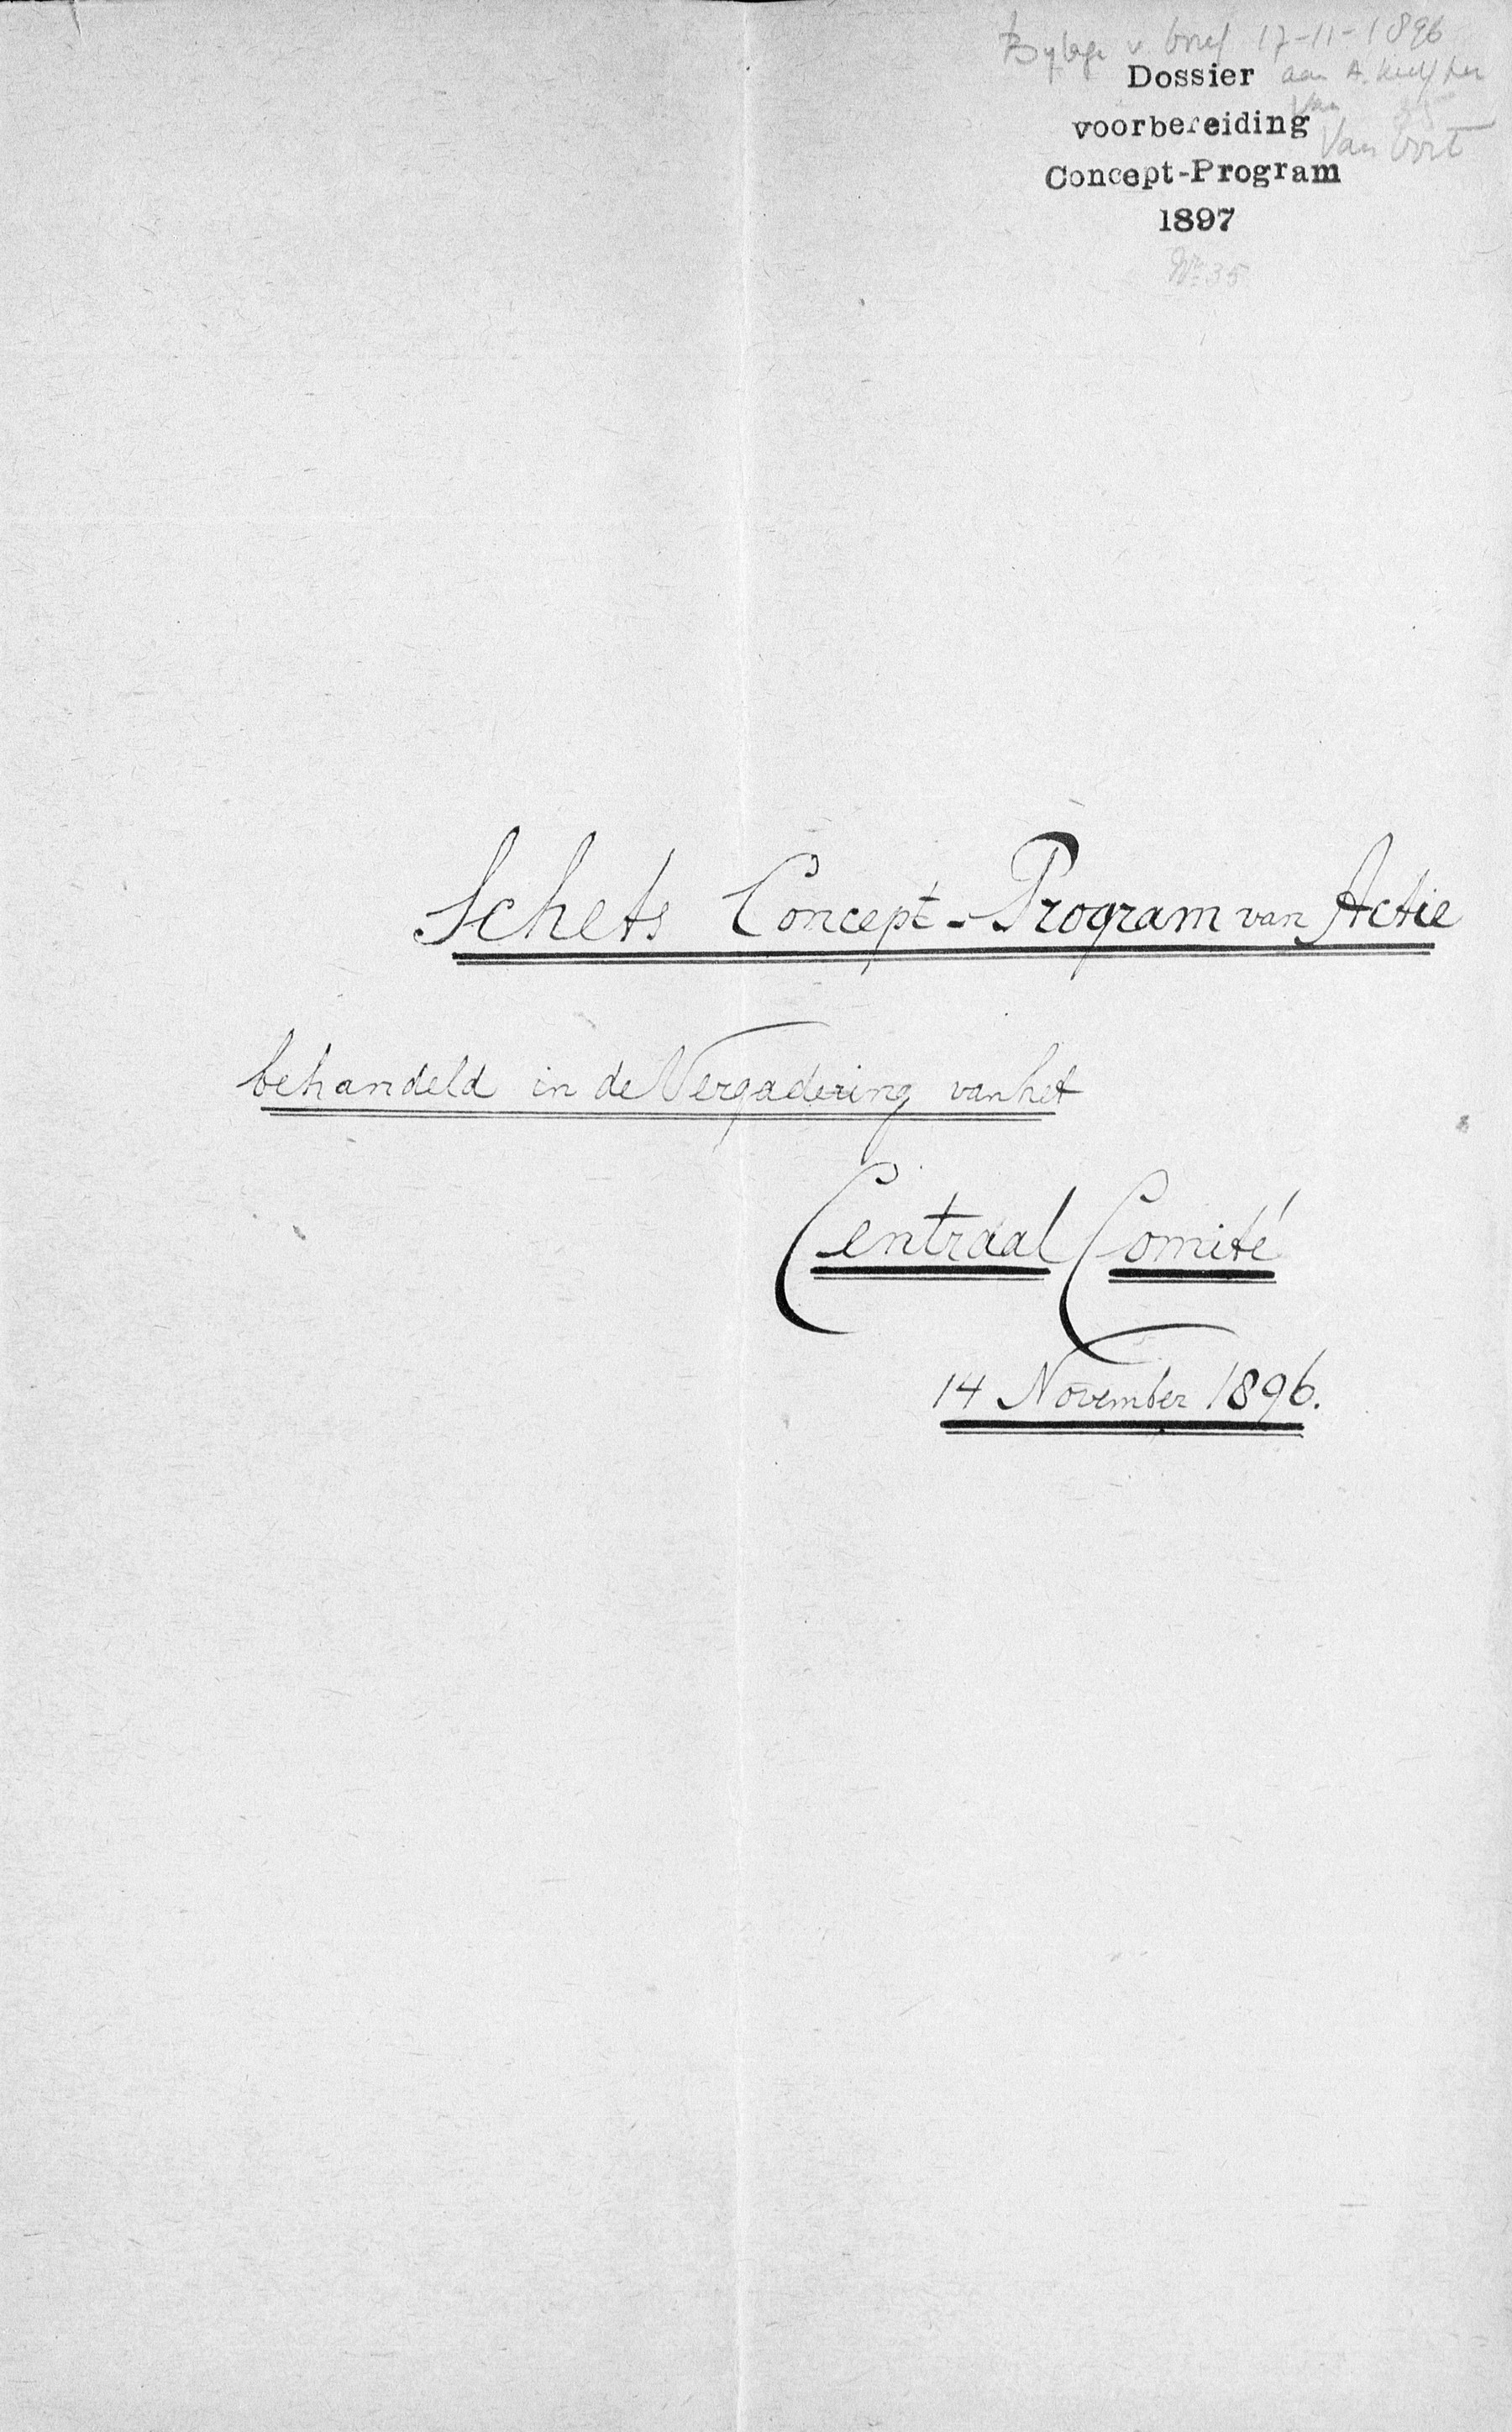 Bylage v. brief 17-11-1896
Dossier aan A. Kuyper
van
voorbereiding
Van Oort
Concept-Program
1897
No 35
Schets Concept-Program van Actie
behandeld in de Vergadering van het
Centraal Comité
14 November 1896.